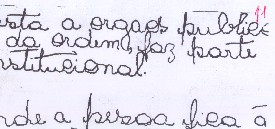 esta a orgaos públic
da ordem, faz parte
nstitucional.
nde a pessoa fica à